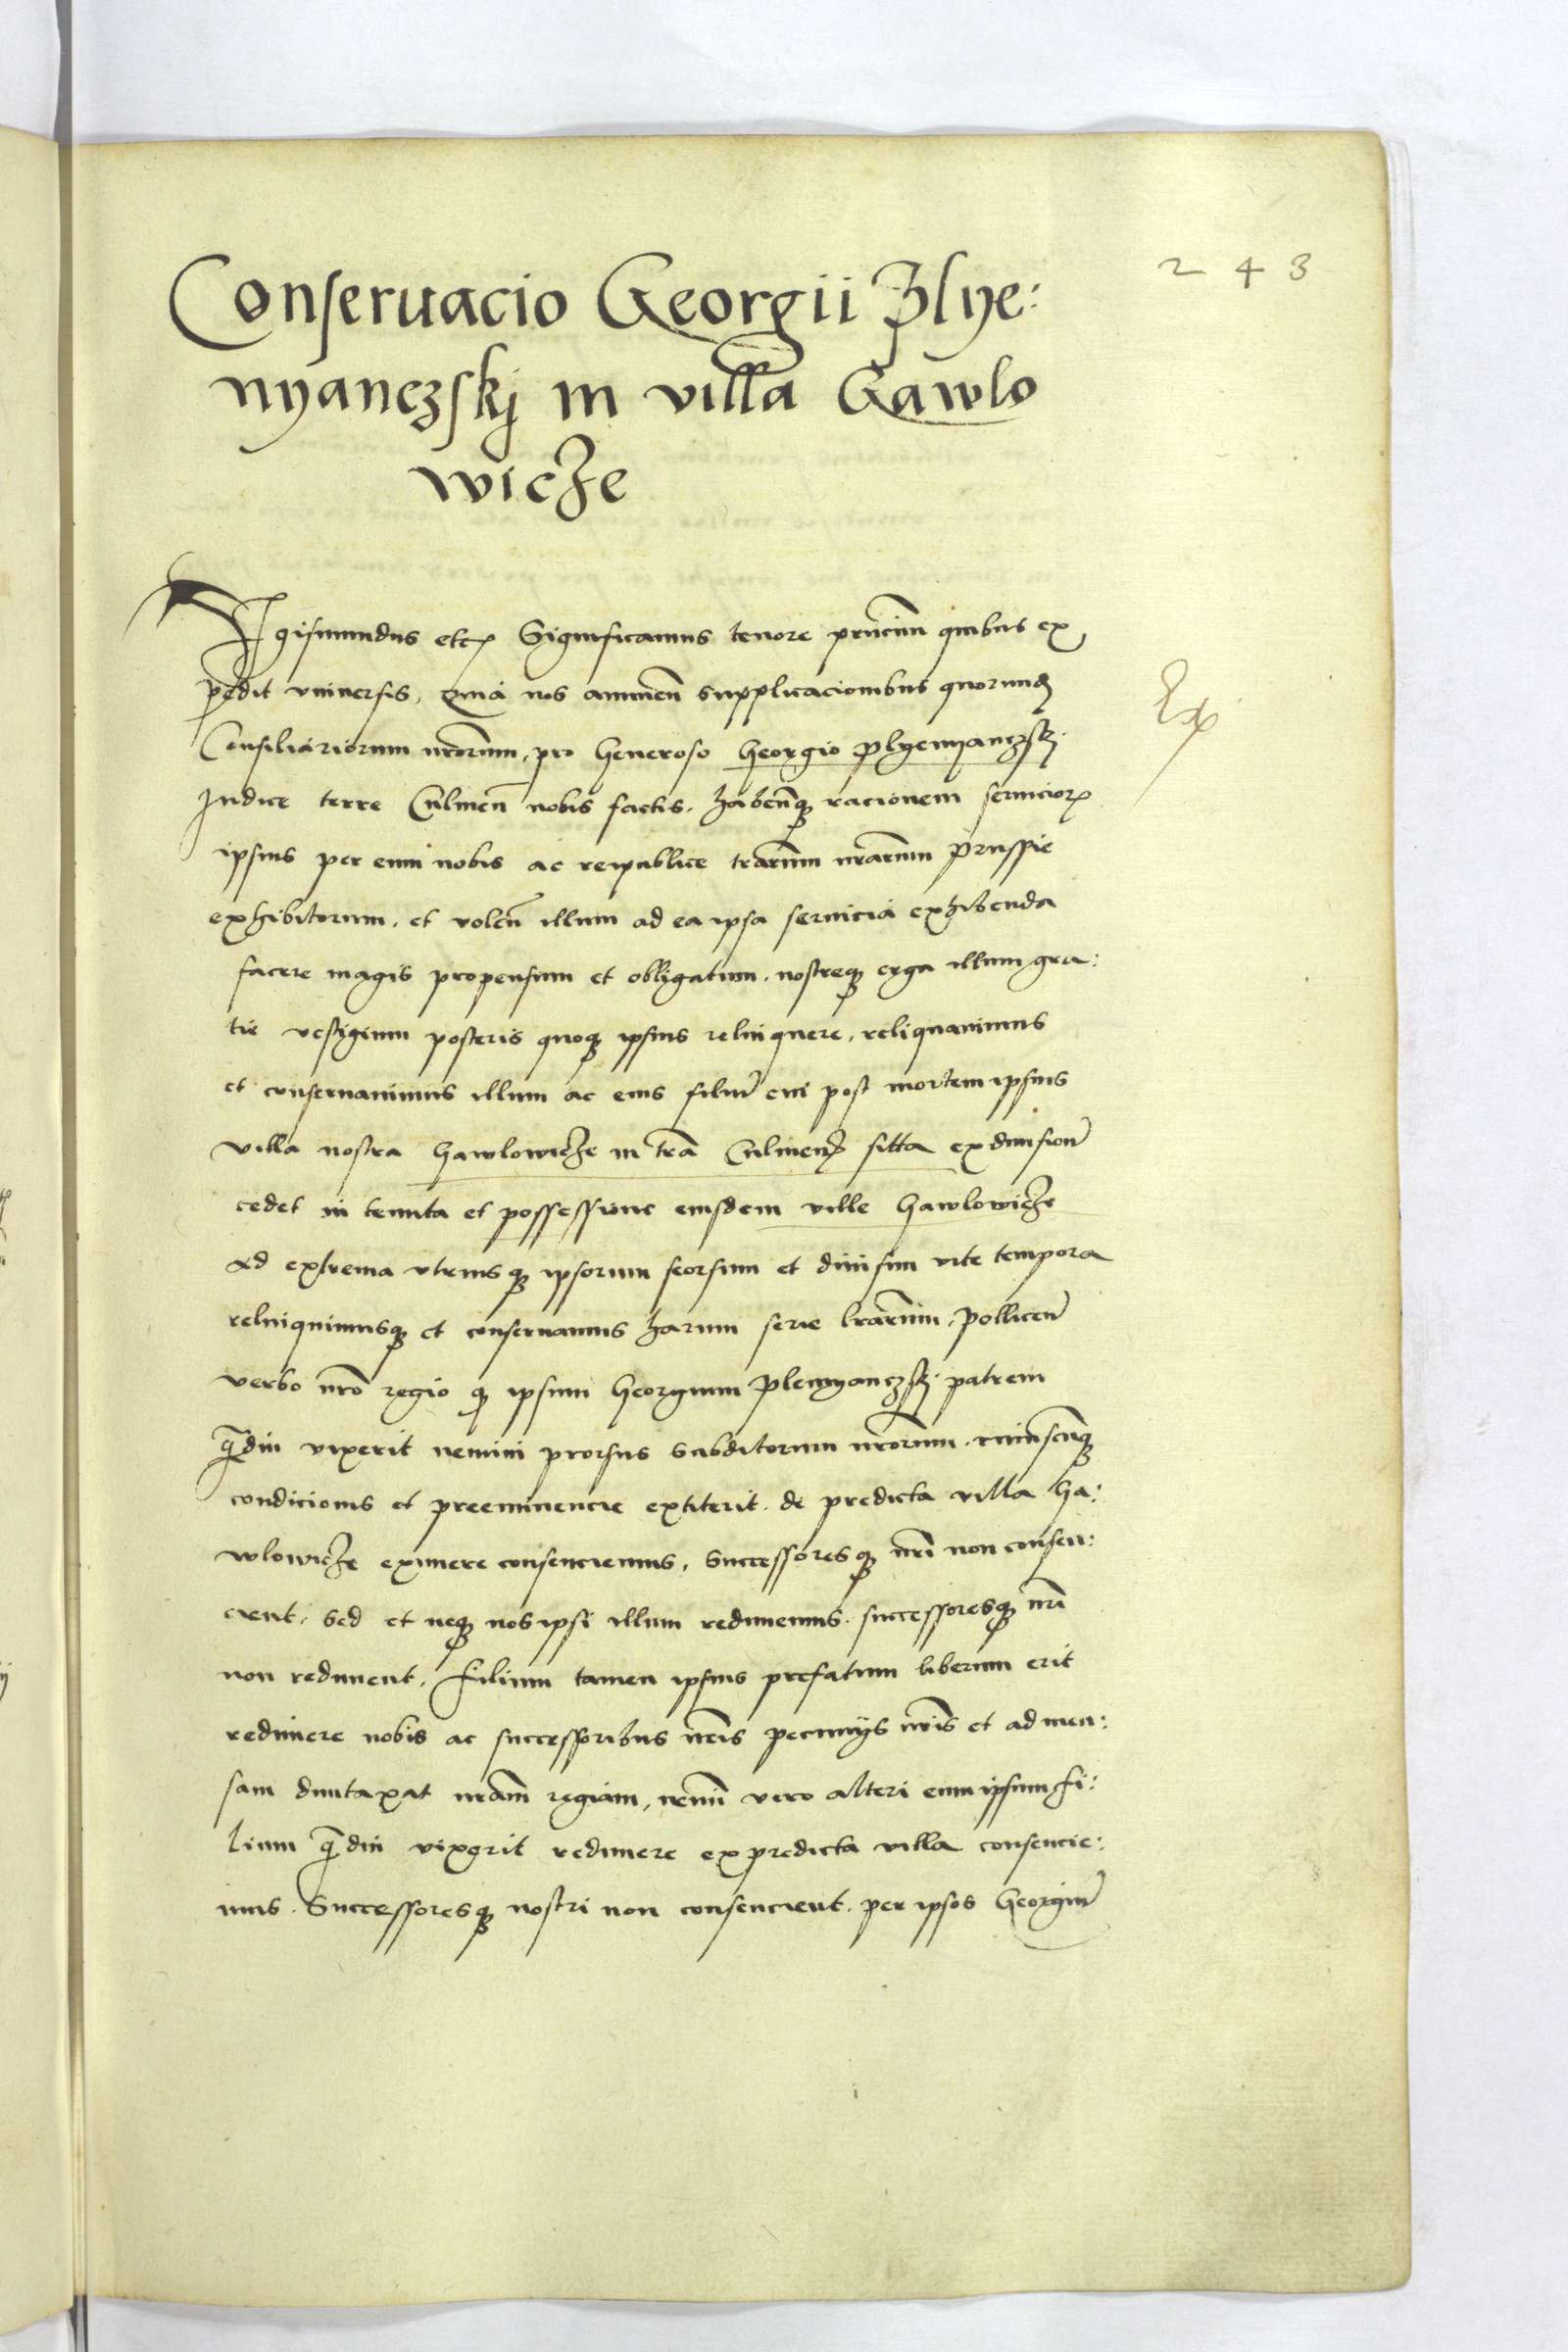 243
Conseruacio Georgii Plye:
nyanczskj in villa Gawlo
wicze
Sigismundus etc Significamus tenore prncium quibus ex
pedit vniuersis, Quia nos annuen supplicacionibus quorund
Consiliariorum nrorum, pro Generoso Georgio Plyenyanczskj
Judice terre Culmen nobis factis. habenq racionem seruicior
ipsius per eum nobis ac reipublice trarum nrarum Prussie
exhibitorum. et volen illum ad ea ipsa seruicia exhibenda
facere magis propensum et obligatum. nostreq erga illum gra:
tie vestigium posteris quoq ipsius relinquere, reliquauimus
et conseruauimus illum ac eius filiu cui post mortem ipsius
villa nostra Gawlowicze in tra Culmen sitta ex diuisione
cedet in tenuta et possessione eiusdem ville Gawlowicze
ad extrema vtriusq ipsorum seorsum et diuisim vite tempora
relinquimusq et conseruamus harum serie lrarum, Pollicen
verbo nro regio q ipsum Georgium Plenyanczskj patrem
qdiu vixerit nemini prorsus subditorum nrorum. cuiuscunq
condicionis et preeminencie extiterit. de predicta villa Ga:
wlowicze eximere consenciemus, Successoresq nri non consen:
cient. Sed et neq nos ipsi illum redimemus. successoresq nri
non rediment. Filium tamen ipsius prefatum liberum erit
redimere nobis ac successoribus nris pecunijs nris et ad men:
sam duntaxat nram regiam, nemini vero alteri eum ipsum fi:
lium qdiu vixerit redimere ex predicta villa consencie:
mus. Successoresq nostri non consencient. per ipsos Georgiu